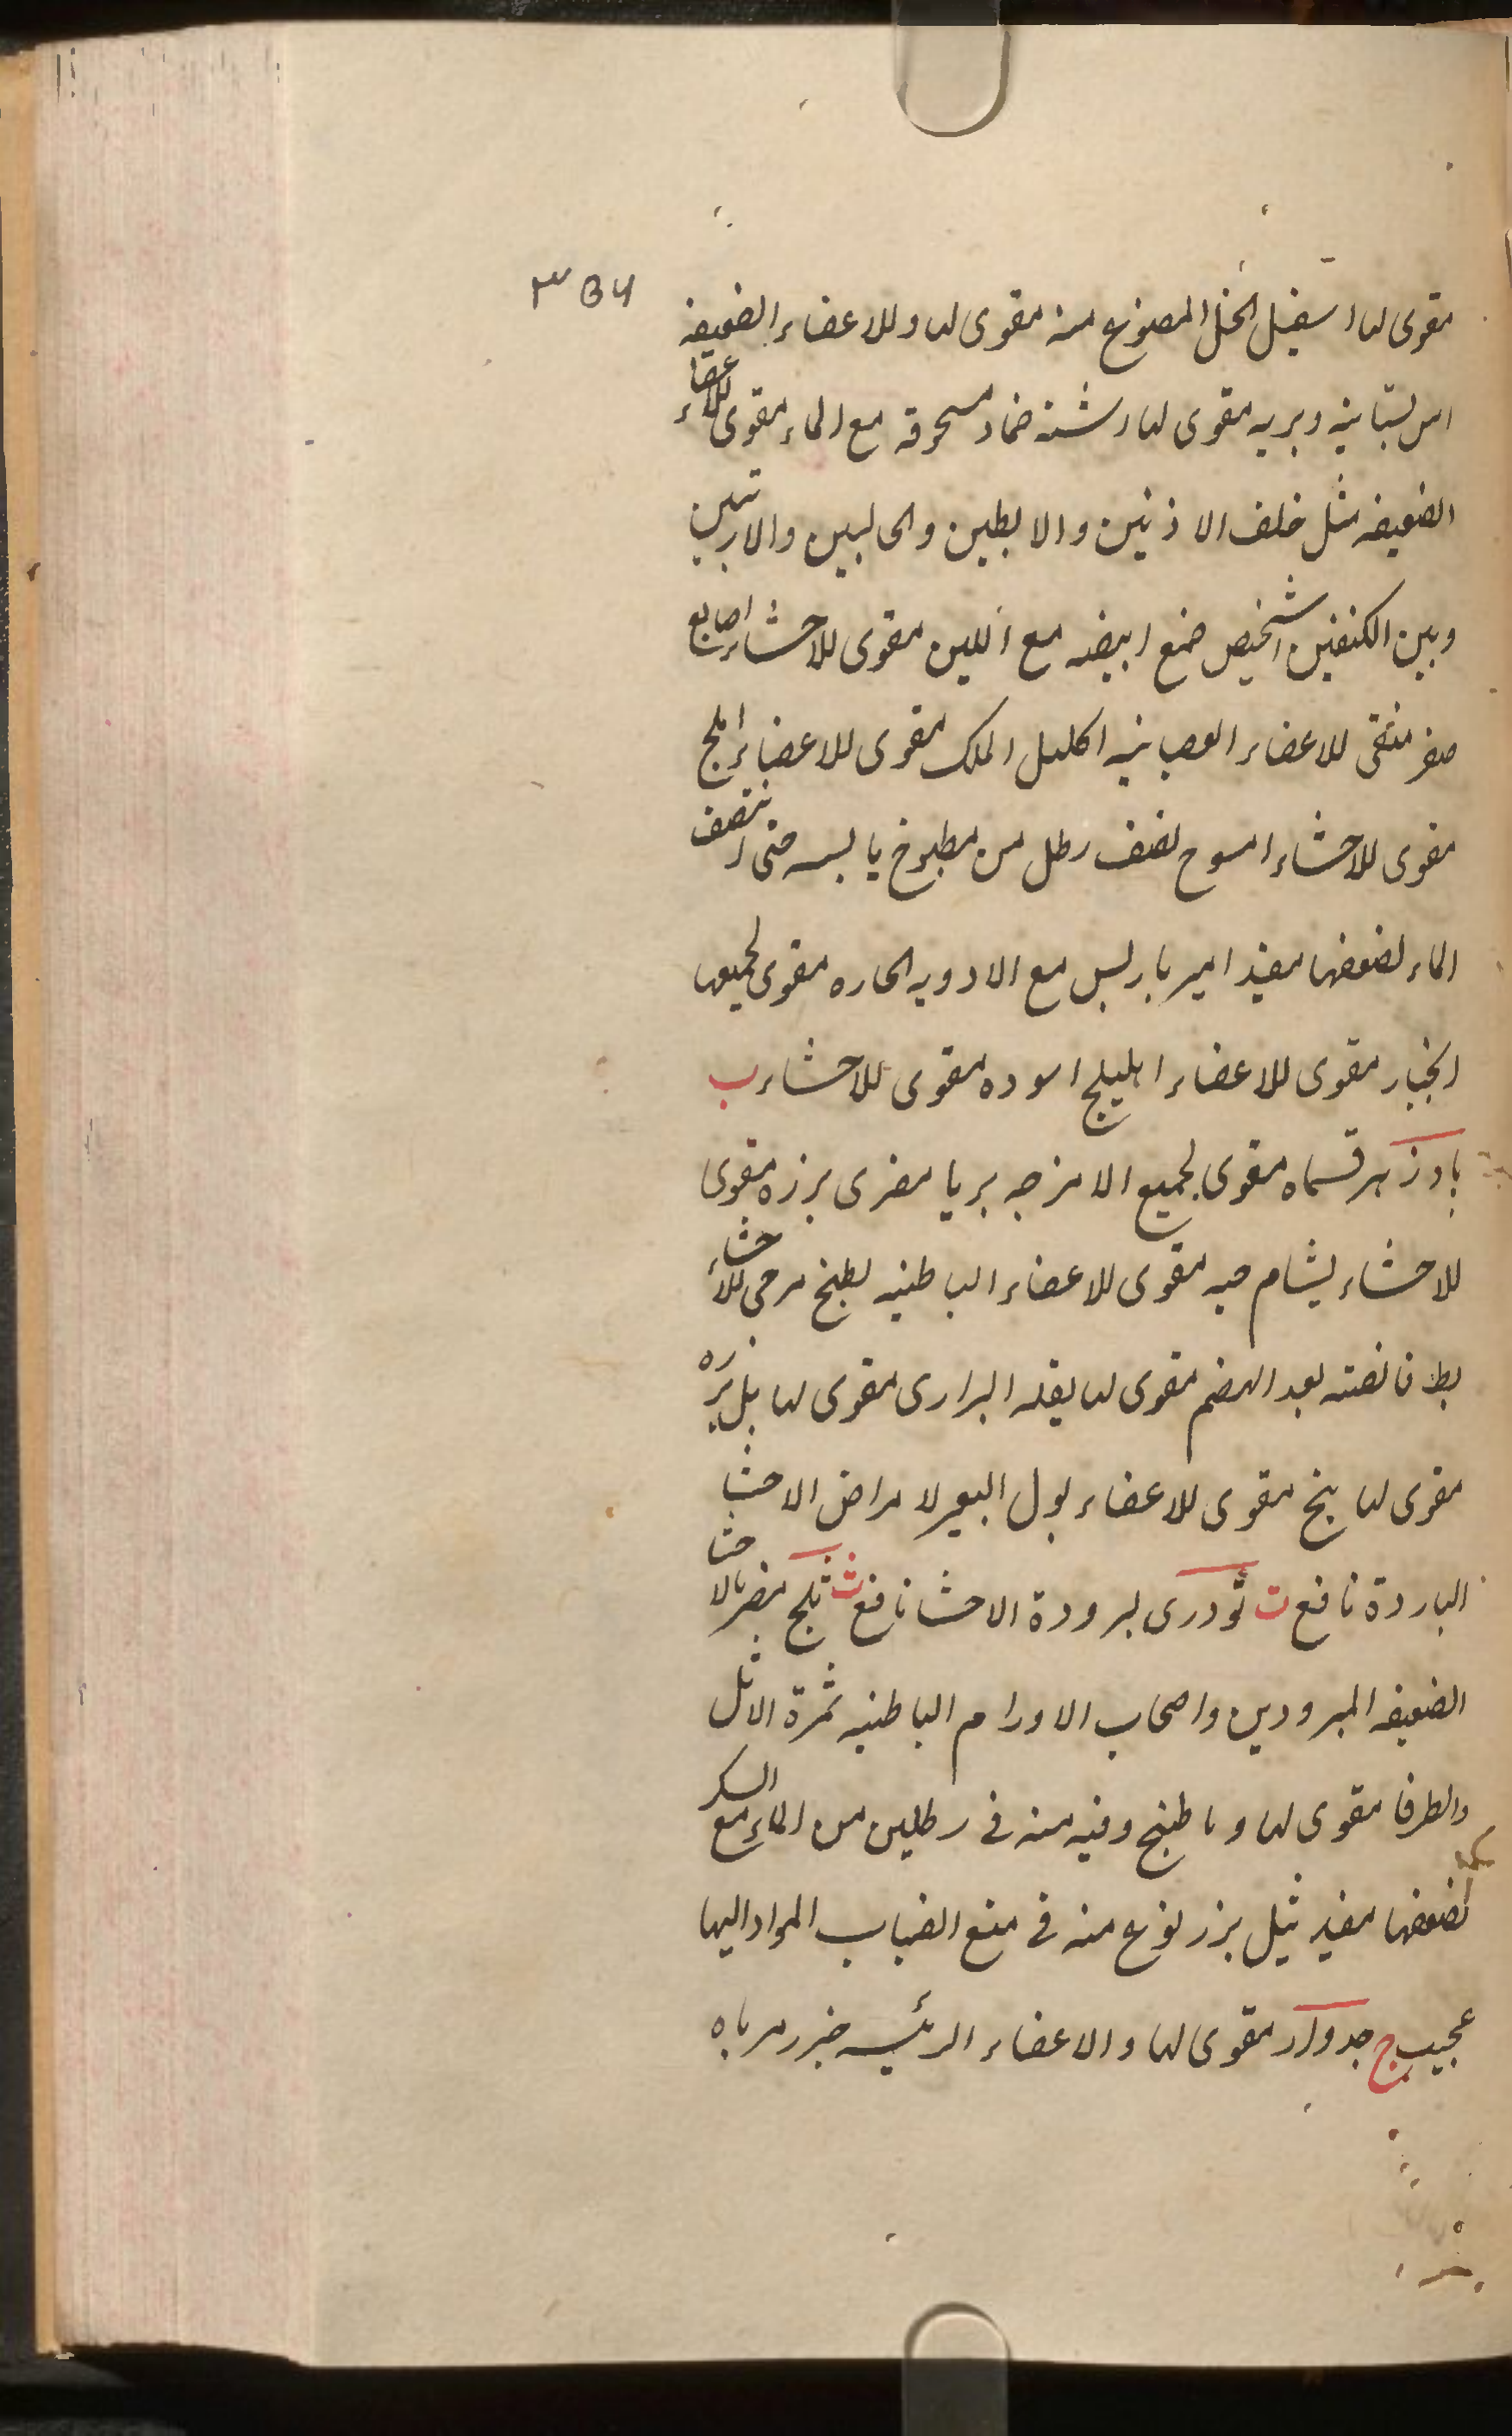 ٣ B ٧
مقوى لها اسقيل الخل المصنوع منه مقوى لها وللاعضاء الضعيفه
اس بستانيه وبريه مقوى لها اشنه ضماد مسحوقه مع الماء مقوى للاعضاء
الضعيفه مثل خلف الاذنين والابطين والحالبين والاربيتين
وبين الكتفين اشخيص ضمغ ابيضه مع اللبن مقوى للاحشاء اصابع
صفر منقى للاعضاء العصبانيه اكليل الملك مقوى للاعضاء املج
مقوى للاحشاء امسوح نصف رطل من مطبوخ يابسه حتى انتصف
الماء لضعفها مفيد اميرباريس مع الادويه الحاره مقوى لجميعها
انجبار مقوى للاعضاء اهليلج اسوده مقوى للاحشاء ب
بادزهر قسماه مقوى لجميع الامزجه برنا مغرى بزره مقوى
للاحشاء بشام حبه مقوى للاعضاء الباطنيه بطيخ مرخى للاحشاء
بط قانصته بعد الهضم مقوى لها بقله البرارى مقوى لها بل بزره
مقوى لها بنج مقوى للاعضاء بول البعير لامراض الاحشا
الباردة نافع ت تودرى لبرودة الاحشا نافع ث ثلج مضر بالاحشا
الضعيفه المبرودين واصحاب الاورام الباطنيه ثمرة الاثل
والطرفا مقوى لها وما طبخ وقيه منه فى رطلين من الماء مع السكر
لضعفها مفيد ثيل بزر نوع منه فى منع انصباب المواد اليها
عجيب ج جدوار مقوى لها والاعضاء الرئيسه جزر مرباه